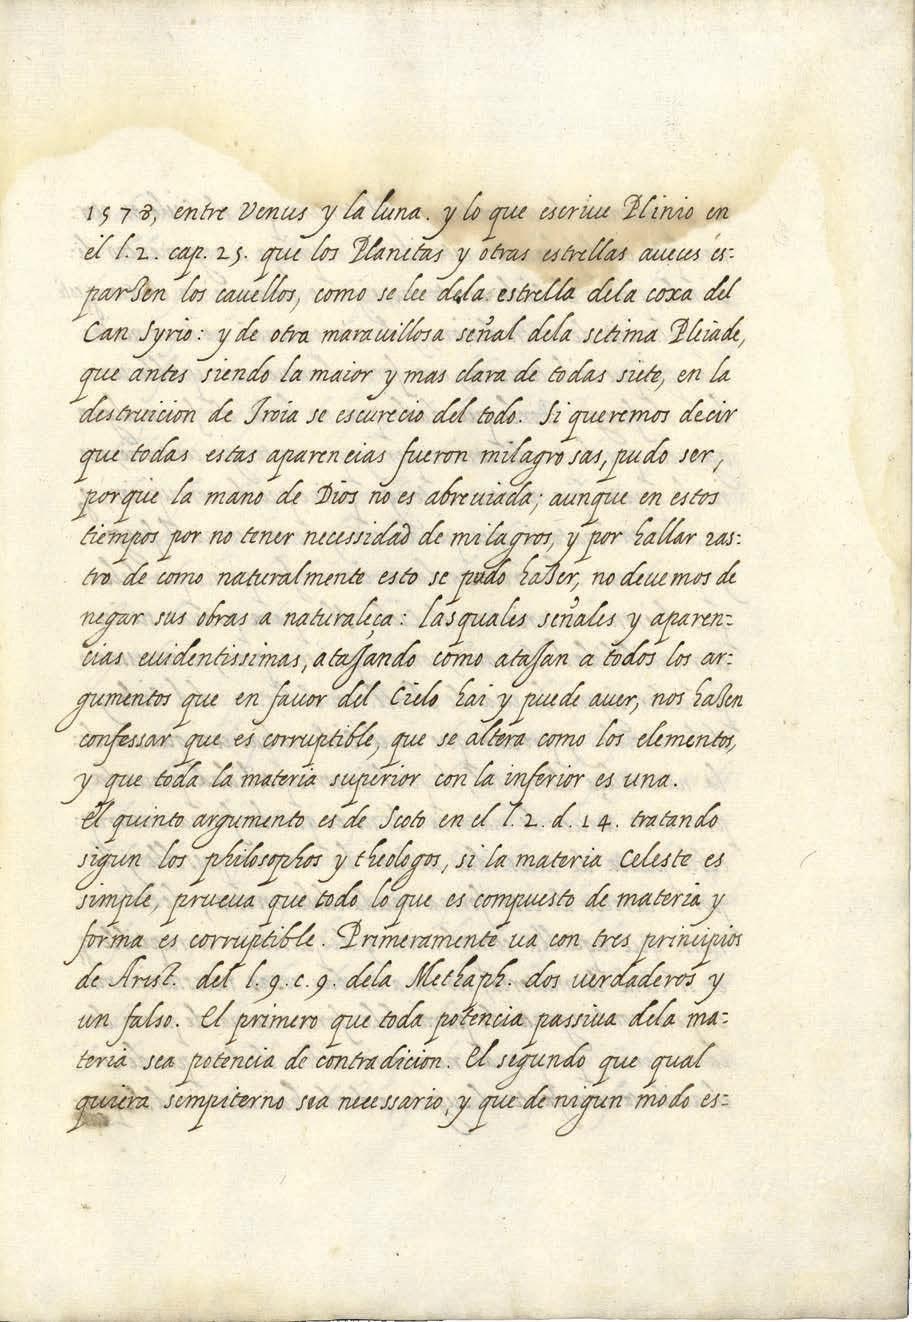 1578, entre Venus y la luna. y lo que escriue Plinio en
el l. 2. cap. 25. que los Planetas y otras estrellas aueces es=
parßen los cauellos, como se lee dela estrella dela coxa del
Can Syrio: y de otra marauillosa señal dela setima Pleiade,
que antes siendo la maior y mas clara de todas siete, en la
destruicion de Troia se escurecio del todo. Si queremos decir
que todas estas aparencias fueron milagrosas, pudo ser,
porque la mano de Dios no es abreuiada; aunque en estos
tiempos por no tener necessidad de milagros, y por hallar ras=
tro de como naturalmente esto se pudo haßer, no deuemos de
negar sus obras a naturaleça: lasquales señales y aparen=
cias euidentissimas, atassando como atassan a todos los ar=
gumentos que en fauor del Cielo hai y puede auer, nos haßen
confessar que es corruptible, que se altera como los elementos,
y que toda la materia superior con la inferior es una.
El quinto argumento es de Scoto en el l. 2. d. 14. tratando
sigun los philosophos y theologos, si la materia Celeste es
simple, prueua que todo lo que es compuesto de materia y
forma es corruptible. Primeramente ua con tres principios
de Arist. del l. 9. c. 9. dela Methaph. dos verdaderos y
un falso. El primero que toda potencia passiua dela ma=
teria sea potencia de contradicion. El segundo que qual
quiera sempiterno sea necessario, y que de nigun modo es=